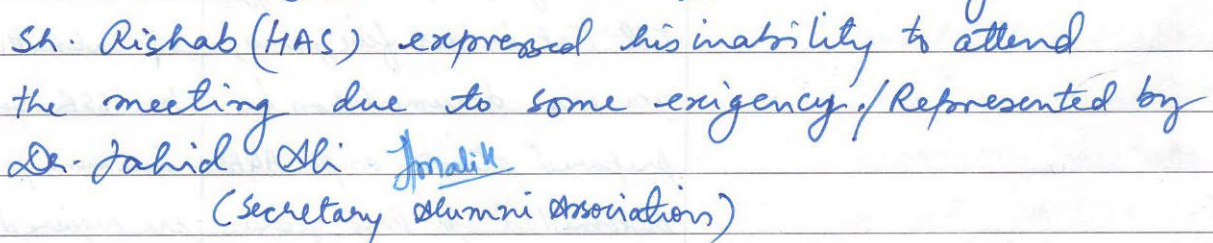 Sh. Rishab (HAS) expressed his inability to attend
the meeting due to some exigency./Represented by
Dr. Jahid Ali Jmalik
(Secretary Alumni Association)